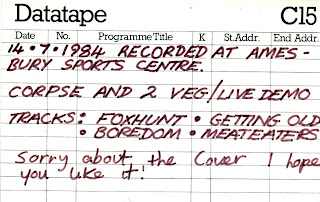 Datatape C15
Date No. Programme Title K St. Addr. End Addr.
14•7•1984 RECORDED AT AMES-
BURY SPORTS CENTRE.
CORPSE AND 2 VEG/LIVE DEMO
TRACKS: FOXHUNT • GETTING OLD
• BOREDOM • MEATEATERS
Sorry about the Cover I hope
you like it!